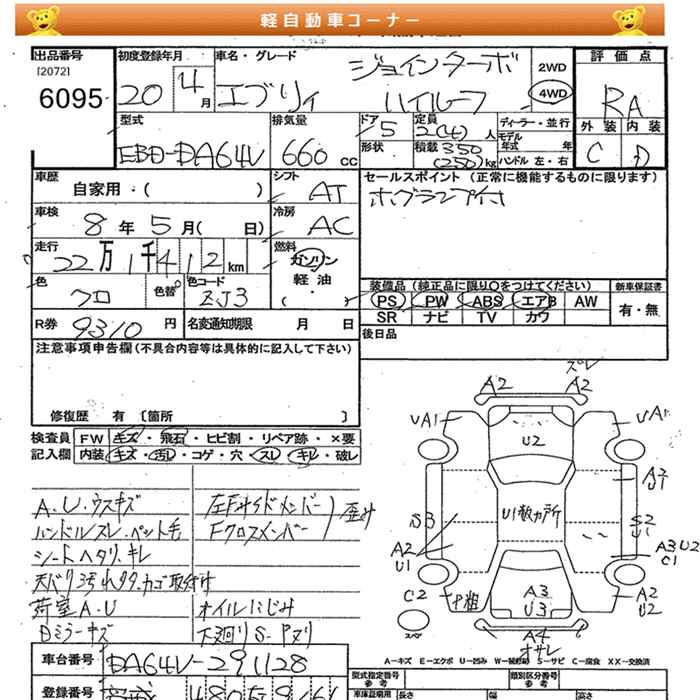 軽自動車コーナー
出品番号 初度登録年月 車名・グレード 評価点
[2072]
6095 20 4月 エブリィ ジョインターボ ハイルーフ 2WD 4WD RA
外装 内装
C D
型式 排気量 ドア 定員 ディーラー・並行
EBD-DA64V 660 cc 5 2(4)人 モデル年式 年
形状 積載 350(250)kg ハンドル 左・右
車歴 シフト セールスポイント(正常に機能するものに限ります)
自家用・( ) AT
車検 冷房
8年5月( 日) AC
走行 燃料
22万1千412km ガソリン
軽油
・( )
色 色替 色コード
クロ ZJ3
装備品(純正品に限り○をつけてください) 新車保証書
PS PW ABS エアB AW 有・無
SR ナビ TV カワ
R券 9310円 名変通知期限 月 日
後日品
注意事項申告欄(不具合内容等は具体的に記入して下さい)
修復歴 有 [箇所 ]
検査員 FW キズ・飛石・ヒビ割・リペア跡・×要
記入欄 内装 キズ・汚レ・コゲ・穴・スレ・キレ・破レ
A.U.ウスキズ
ハンドルスレ.ペット毛
シートヘタリ.キレ
荷室A.U
Dミラーキズ
左Fサイドメンバー
Fクロスメンバー
歪み
オイルにじみ
下廻りS
ズレ
A2 A2
UA1 UA1
U2
S3
A2
U1
S2
U1
A3 U2
C1
C2
A3
U3
A2
U2
A4
A-キズ E-エクボ U-凹み W-補修跡 S-サビ C-腐食 XX-交換済
車台番号 DA64V-291128
登録番号
型式指定番号 参考
類別区分番号 参考
長さ 幅 高さ